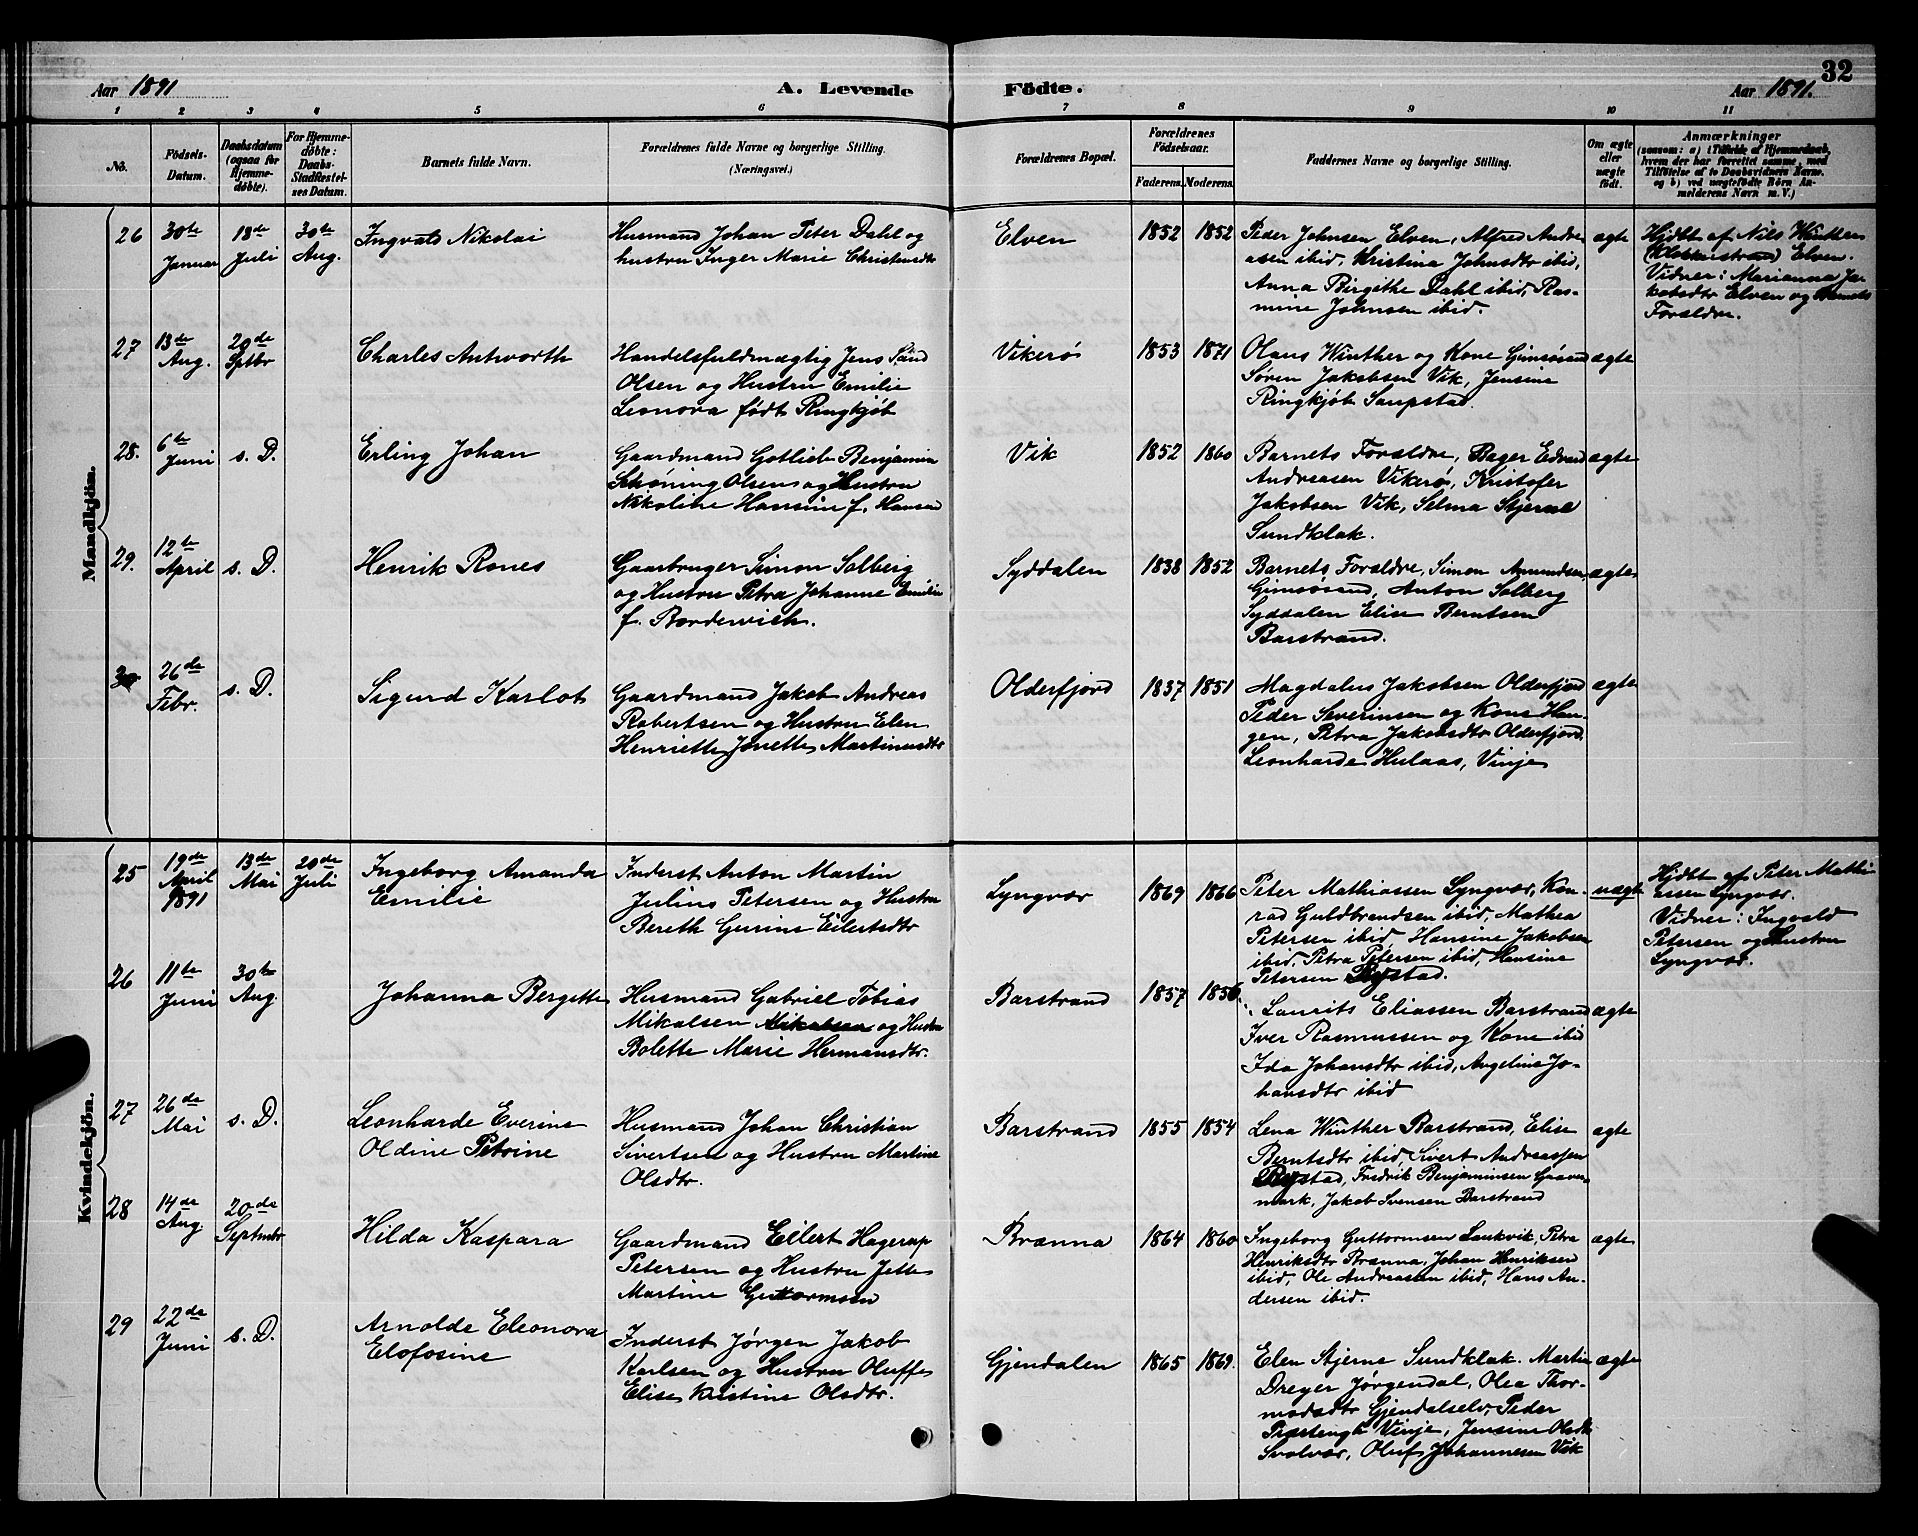 32
Aar 1891
A. Levende Födte.
Aar 1891.
1 2 3 4 5 6 7 8 9 10 11
No.
Födsels-
Datum.
Daabsdatum
(ogsaa for
Hjemme-
döbte).
For Hjemme-
döbte:
Daabs-
Stadfæstel-
ses Datum.
Barnets fulde Navn.
Forældrenes fulde Navne og borgerlige Stilling.
(Næringsvei.)
Forældrenes Bopæl.
Forældrenes
Födselsaar.
Faderens. Moderens.
Faddernes Navne og borgerlige Stilling.
Om ægte
eller
uægte
födt.
Anmærkninger
(saasom: a) i Tilfælde af Hjemmedaab,
hvem der har forrettet samme, med
Tilföielse af to Daabsvidners Navne.
og b) ved uægtefödte Börn An-
melderens Navn m. V.)
Mandkjön.
26
30te
Januar
18de
Juli
30te
Aug.
Ingvald Nikolai
Husmand Johan Peter Dahl og
hustru Inger Marie Christensdtr
Elven
1852 1852
Peder Johnsen Elven, Alfred Andre-
asen ibid, Kristina Johnsdtr ibid,
Anna Birgithe Dahl ibid, Ras-
mine Johnsen ibid.
ægte
Hjdbt af Nils Winther
(Klokkerstrand) Elven.
Vidner: Marianna Ja-
kobsdtr Elven og Barnets
Forældre.
27
13de
Aug.
20de
Sptbr
Charles Antworth
Handelsfuldmægtig Jens Sand
Olsen og Hustru Emilie
Leonora født Ringkjøb
Vikerø
1853 1871
Olaus Winther og Kone Gimsøsand
Søren Jakobsen Vik, Jensine
Ringkjøb Saupstad.
ægte
28.
6te
Juni
s. D.
Erling Johan
Gaardmand Gotlieb Benjamin
Schøning Olsen og Hustru
Nikoline Hansine f. Hansen
Vik
1852 1860
Barnets Forældre, Bager Edvard
Andreasen Vikerø, Kristofer
Jakobsen Vik, Selma Stjerne
Sundklak.
ægte
29.
12te
April
s. D.
Henrik Rones
Gaarbruger Simon Solberg
og Hustru Petra Johanne Emilie
f. Bordewich.
Syddalen
1838 1852
Barnets Forældre, Simon Amundsen
Gimsøsand, Anton Solberg
Syddalen Elise Berntsen
Barstrand.
ægte
30
26de
Febr.
s. D.
Sigurd Karlot
Gaardmand Jakob Andreas
Robertsen og Hustru Elen
Henriette Jonette Martinusdtr
Olderfjord
1837 1851
Magdalus Jakobsen Olderfjord
Peder Severinsen og Kone Hau-
gen, Petra Jakobsdtr Olderfjord.
Leonharde Hulaas, Vinje
ægte
Kvindekjön.
25
19de
April
1891
13de
Mai
20de
Juli
Ingeborg Amanda
Emilie
Inderst Anton Martin
Julius Petersen og Hustru
Bereth Gurine Eilertsdtr
Lyngvær
1869 1866
Peter Mathiassen Lyngvær, Kon-
rad Guldbrandsen ibid, Mathea
Petersen ibid, Hansine Jakobsen
ibid, Petra Petersen ibid, Hansine
Petersen Rystad.
uægte
Hjdbt af Peter Mathi-
assen Lyngvær.
Vidner: Ingvald
Petersen og Hustru
Lyngvær.
26
11te
Juni
30te
Aug.
Johanna Bergette
Husmand Gabriel Tobias
Mikalsen Mikalsen og Hustru
Bolette Marie Hermansdtr.
Barstrand
1857 1856
Laurits Eliassen Barstrand
Iver Rasmussen og Kone ibid
Ida Johansdtr ibid, Angeline Jo-
hansdtr ibid
ægte
27
26de
Mai
s. D.
Leonharde Everine
Oldine Petrine
Husmand Johan Christian
Sivertsen og Hustru Martine
Olsdtr.
Barstrand
1855 1854
Lena Winther Barstrand, Elise
Berntsdtr ibid, Sivert Andreassen
Rystad, Fredrik Benjaminsen Graver-
mark, Jakob Svensen Barstrand
ægte
28
14de
Aug.
20de
Septmbr
Hilda Kaspara
Gaardmand Eilert Hagerup
Petersen og Hustru Jette
Martine Guttormsen
Brænna
1864 1860
Ingeborg Guttormsen Laukvik, Petra
Henriksdtr Brænna, Johan Henriksen
ibid, Ole Andreassen ibid, Hans An-
dersen ibid.
ægte
29
22de
Juni
s. D.
Arnolde Eleonora
Elofosine
Inderst Jørgen Jakob
Karlsen og Hustru Oluffe
Elise Kristine Olsdtr.
Gjendalen
1865 1869.
Elen Stjerne Sundklak. Martin
Dreyer Jørgendal, Olea Thor-
modsdtr Gjendalselv, Peder
Prestengh Vinje, Jensine Olsdtr
Svolvær, Oluf Johannesen Vik
ægte